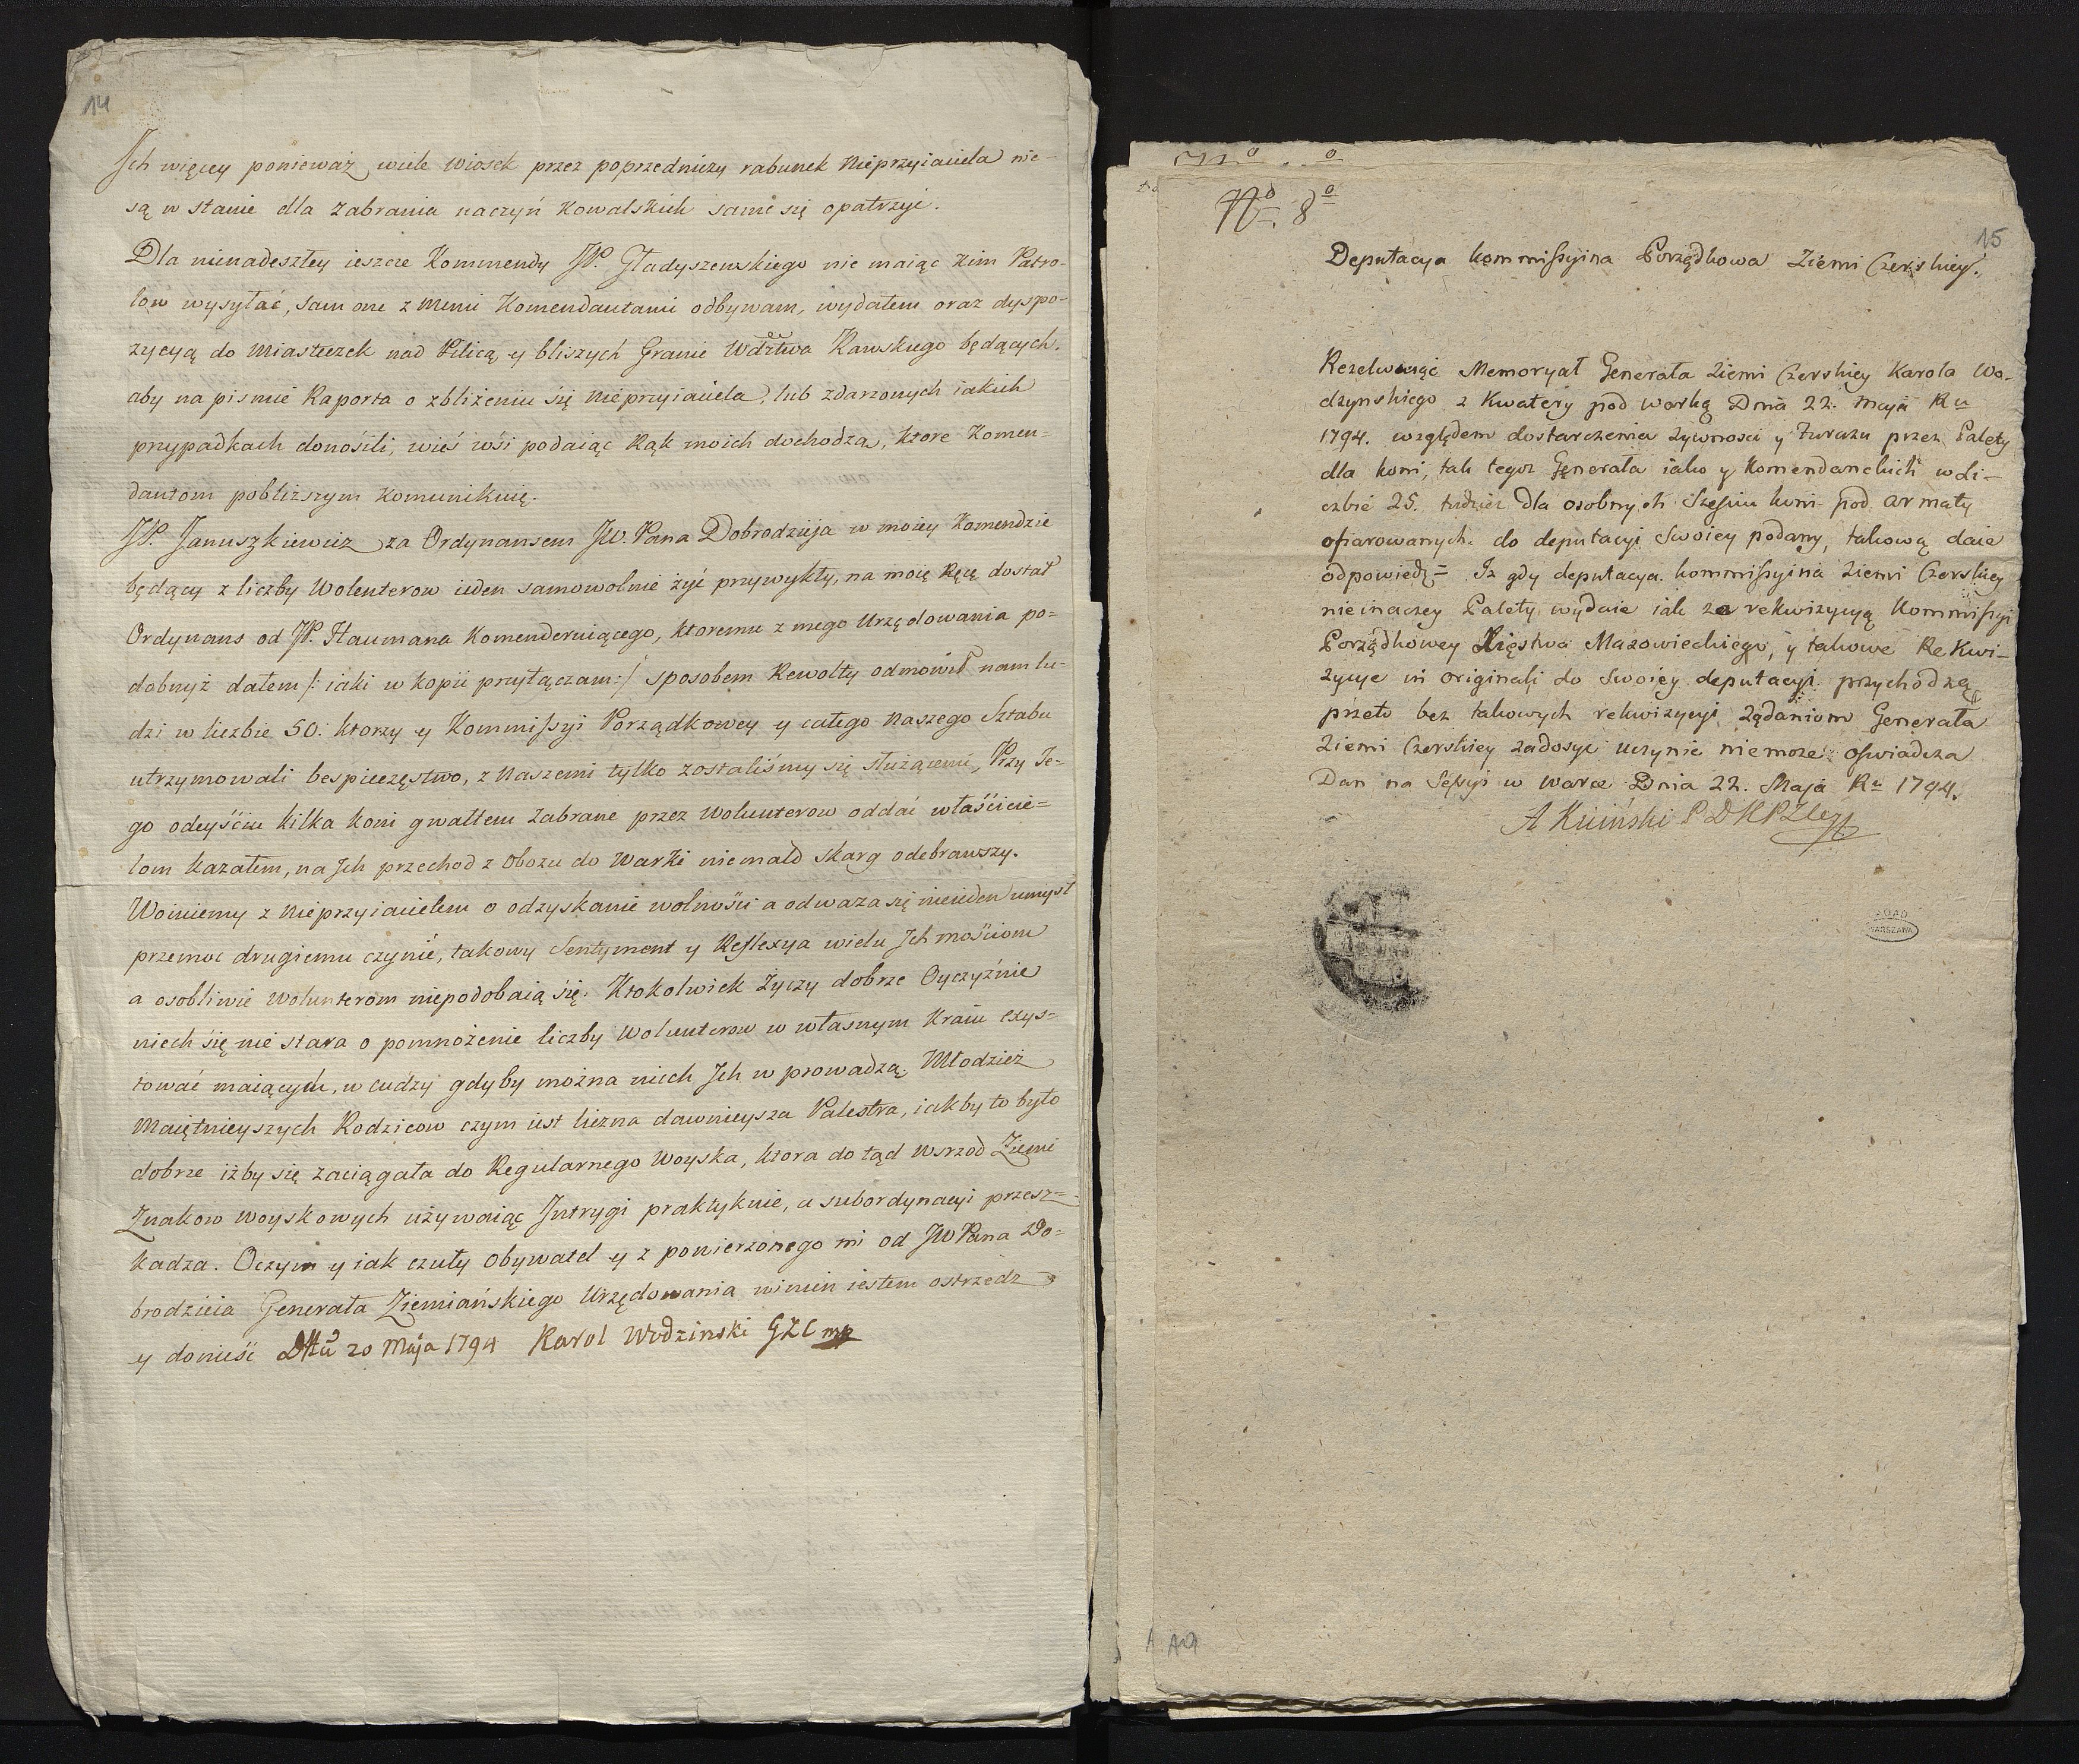 14
Jch więcey ponieważ wiele Wiosek przez poprzedniczy rabunek Nieprzyiaciela nie-
są w stanie dla zabrania naczyń Kowalskich same się opatrzyć.
Dla nienadeszłey ieszcze Kommendy JP. Gładyszewskiego nie maiąc kim Patro-
low wysyłać, sam one z Memi Komendantami odbywam, wydałem oraz dyspo-
zycyą do Miasteczek nad Pilicą y bliszych Granic Wdztwa Rawskiego będących.
aby na pismie Raporta o zbliżeniu się Nieprzyiaciela, lub zdarzonych iakich
przypadkach donośili, wieś wśi podaiąc Rąk moich dochodzą, ktore Komen-
dantom pobliższym komunikuię.
JP. Januszkiewicz za Ordynansem JW. Pana Dobrodzieja w moiey Komendzie
będący z liczby Wolenterow ieden samowolnie żyć przywykły, na moię Ręcę dostał
Ordynans od JP. Haumana Komenderuiącego, ktoremu z mego Urzędowania po-
dobnyż dałem /: iaki w kopii przyłączam :/ sposobem Rewolty odmowił nam lu-
dzi w liczbie 50. ktorzy y Kommissyi Porządkowey y całego naszego Sztabu
utrzymowali bespieczęstwo, z Naszemi tylko zostaliśmy się służącemi, Przy Je-
go odeyśćiu kilka koni gwałtem zabrane przez Wolunterow oddać właśćicie=
lom kazałem, na Jch przechod z Obozu do Warki niemało skarg odebrawszy.
Woiuiemy z Nieprzyiacielem o odzyskanie wolnośći a odważa się nieieden umysł
przemoc drugiemu czynić, takowy Sentyment y Reflexya wielu Jch mośćiom
a osobliwie Wolunterom niepodobaią się. Ktokolwiek życzy dobrze Oyczyźnie
niech śię nie stara o pomnożenie liczby Wolunterow w własnym Kraiu exys=
tować maiącym, w cudzy gdyby można niech Jch wprowadzą. Młodzież
Maiętnieyszych Rodzicow czym iest liczna dawnieysza Palestra, iakby to było
dobrze iżby się zaciągała do Regularnego Woyska, ktora do tąd wsrzod Ziemi
Znakow Woyskowych używaiąc Jntrygi praktykuie, a subordynacyi przesz=
kadza. Oczym y iak czuły Obywatel y z powierzonego mi od JW Pana Do-
brodzieia Generała Ziemiańskiego Urzędowania winien iestem ostrzedz
y donieść Dttū 20 Maja 1794 Karol Wodzinski GZC mp
No. 8o
15
Deputacya kommissyina Porządkowa Ziemi Czerskiey.
Rezelwuiąc Memoryał Generała Ziemi Czerskiey Karola Wo-
dzynskiego z Kwatery pod warką Dnia 22. Maja Ru
1794. względem dostarczenia żywnosci y furażu przez Palety
dla koni, tak tegoż Generała iako y Komendanckich w li-
czbie 25. tudzież Dla osobnych Sześciu koni pod armaty
ofiarowanych. do deputacyi Swoiey podany, takową daie
odpowiedź = Iż gdy deputacya. kommissyina Ziemi Czerskiey
nieinaczey Palety wydaie iak za rekwizycyą Kommissyi
Porządkowey Xięstwa Mazowieckiego, y takowe Rekwi-
zycye in originali do Swoiey deputacyi przychodzą
przeto bez takowych rekwizycyi żądaniom Generała
Ziemi Czerskiey zadosyc uczynic niemoze oświadcza
Dan na Sessyi w Warce Dnia 22. Maja Ru 1794.
AGAD
WARSZAWA